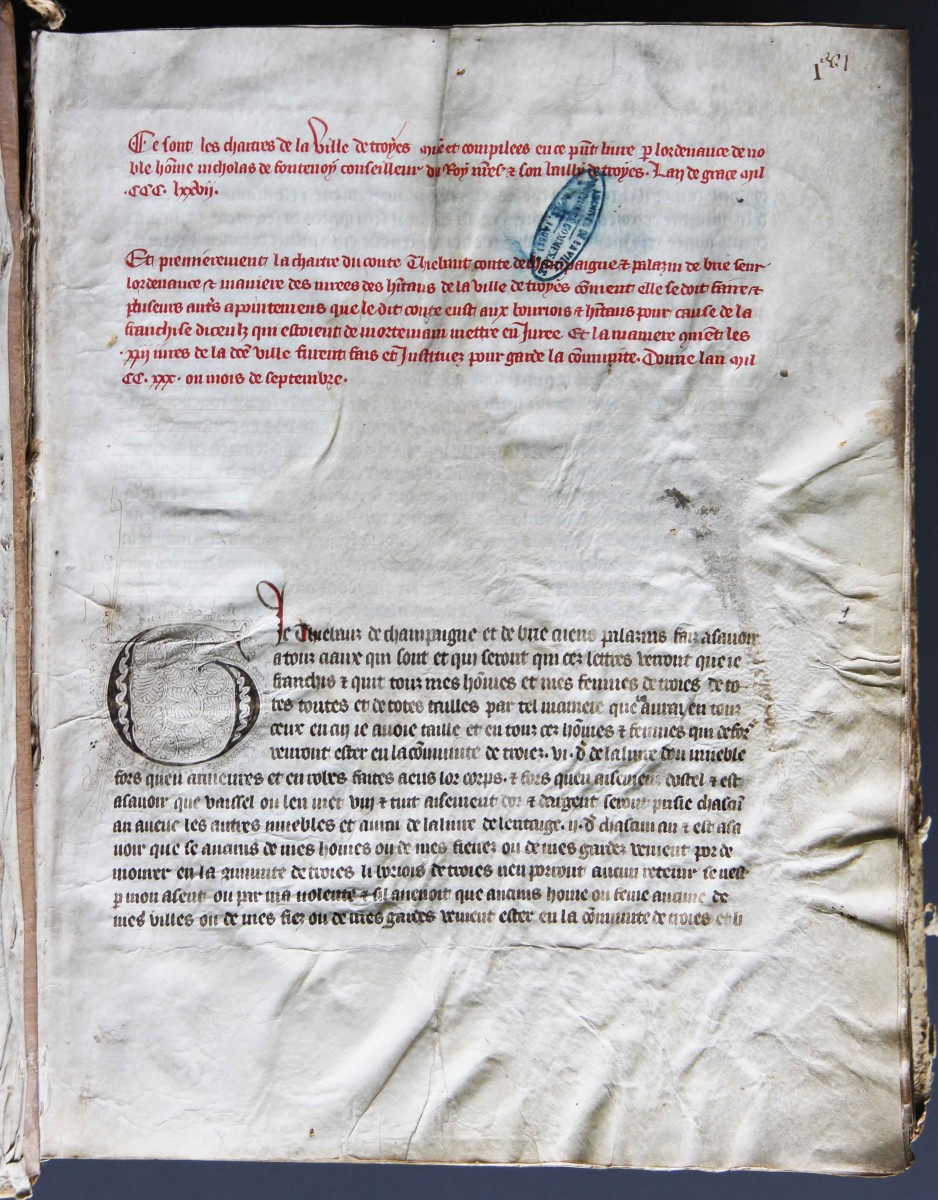 Ce sont les chartres de la Ville de troyes et compilees en ce pñt liure p lordenance de no
ble hom̃e nicholas de fontenoy conseilleur du Roy nr̃es ⁊ son bailly de troyes. Lan de grace mil
.CCC. lxxvii.
Et premierement la chartre du conte Thiebaut conte de champaigne ⁊ palazin de brie seur
lordenance ⁊ maniere des iurees des hĩtans de la ville de troyes com̃ent elle se doit faire ⁊
pluseurs autr̃s apointemens que le dit conte eust aux bouriois ⁊ hĩtans pour cause de la
franchise diceulz qui estoient de mortemain mettre en Juree. Et la maniere les
.xiij iures de la dc̃e ville furent fais et Instituez pour garde la com̃unite. Donne lan mil
CC. xxx. ou mois de septembre.
Je Thiebauz de champaigne et de brie cuens palazins faiz asauoir
a touz ciaux qui sont et qui seront qui cez lettres verront que ie
franchis ⁊ quit touz mes hom̃es et mes femmes de troies de to-
tes toutes et de totes tailles par tel maniere que iaurai en touz
ceux en cui ie auoie taille et en touz cez hom̃es ⁊ femmes qui desor
venront ester en la com̃unite de troiez. vi. d̃ de la liure dou mueble
fors queu armeures et en robes faites aeus lor corps. ⁊ fors queu aisement dostel ⁊ est
asauoir que vaissel ou len met vin ⁊ tuit aisement dor ⁊ dargent seront prisie chascũ
an auec les autres muebles et aurai de la liure de leritaige. ij. d̃ chascun an ⁊ est asa
uoir que se aucuns de mes homes ou de mes fieuez ou de mes gardez venient por de
mourer en la de troies li boriois de troies nen porront aucun retenir se nest
p mon asent ou par ma volente ⁊ sil auenoit que aucuns home ou feme aucune de
mes villes ou de mes fiez ou de mes gardes venient ester en la com̃unite de troies et li
ARCHIVES DE LA VILLE
1